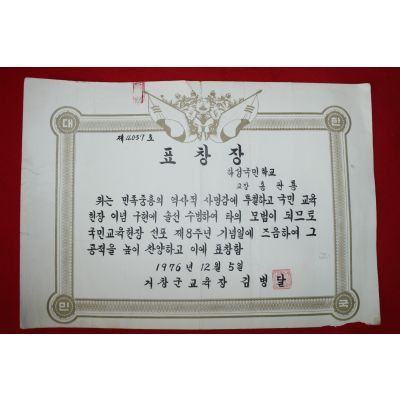 대 한
제 호
표 창 장
국민학교
교장
위는 민족중흥의 역사적 사명감에 투철하고 국민 교육
헌장 이념 구현에 솔선 수범하여 타의 모범이 되므로
국민교육헌장 선포 제8주년 기념일에 즈음하여 그
공적을 높이 선양하고 이에 표창함
1976년 12월 5일
거창군교육장 김병달
민 국